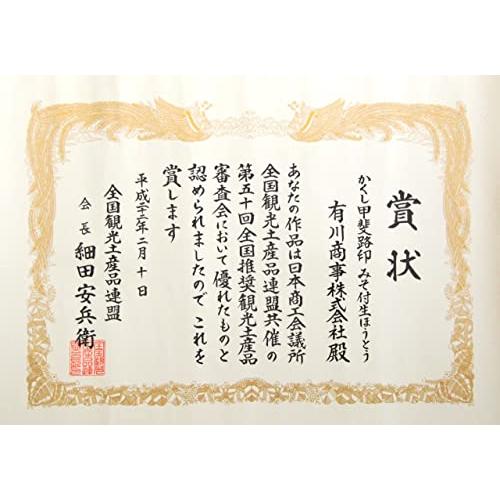 賞状
かくし甲斐路印 みそ付生ほうとう
有川商事株式会社 殿
あなたの作品は日本商工会議所
全国観光土産品連盟共催の
第五十回全国推奨観光土産品
審査会において優れたものと
認められましたので これを
賞します
平成二十二年二月十日
全国観光土産品連盟
会長 細田安兵衛